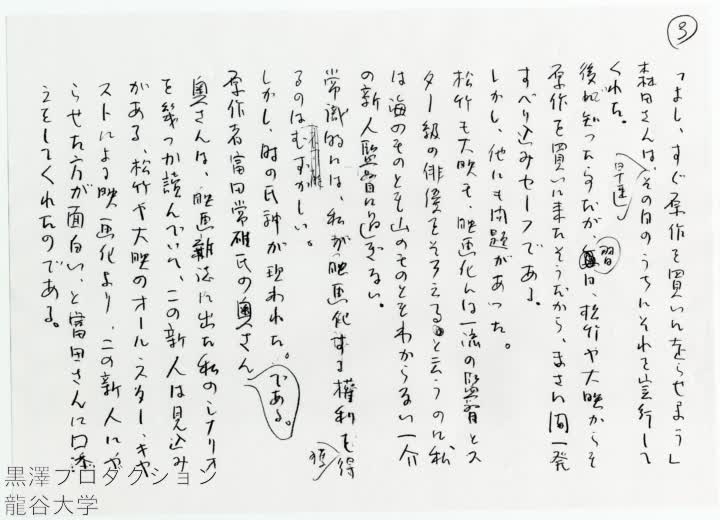 3
「よし、すぐ原作を買いに走らせよう」
森田さんは、早速その日のうちにそれを実行して
くれた。
後に知ったのだが、翌日、松竹や大映からそ
原作を買いに来たそうだから、まさに間一発
すべり込みセーフである。
しかし、他にも問題があった。
松竹も大映も、映画化には一流の監督とス
ター級の俳優をそろえると云うのに、私
は海のものとも山のものともわからない一介
の新人監督に過ぎない。
常識的には、私が映画化する権利を獲得
するのはむずかしい。
しかし、時の氏神が現われた。
原作者富田常雄氏の奥さんである。
奥さんは、映画雑誌に出た私のシナリオ
を幾つか読んでいて、この新人は見込み
がある、松竹や大映のオールスター・キャ
ストによる映画化より、この新人にや
らせた方が面白い、と富田さんに口添
えをしてくれたのである。
黒澤プロダクション
龍谷大学